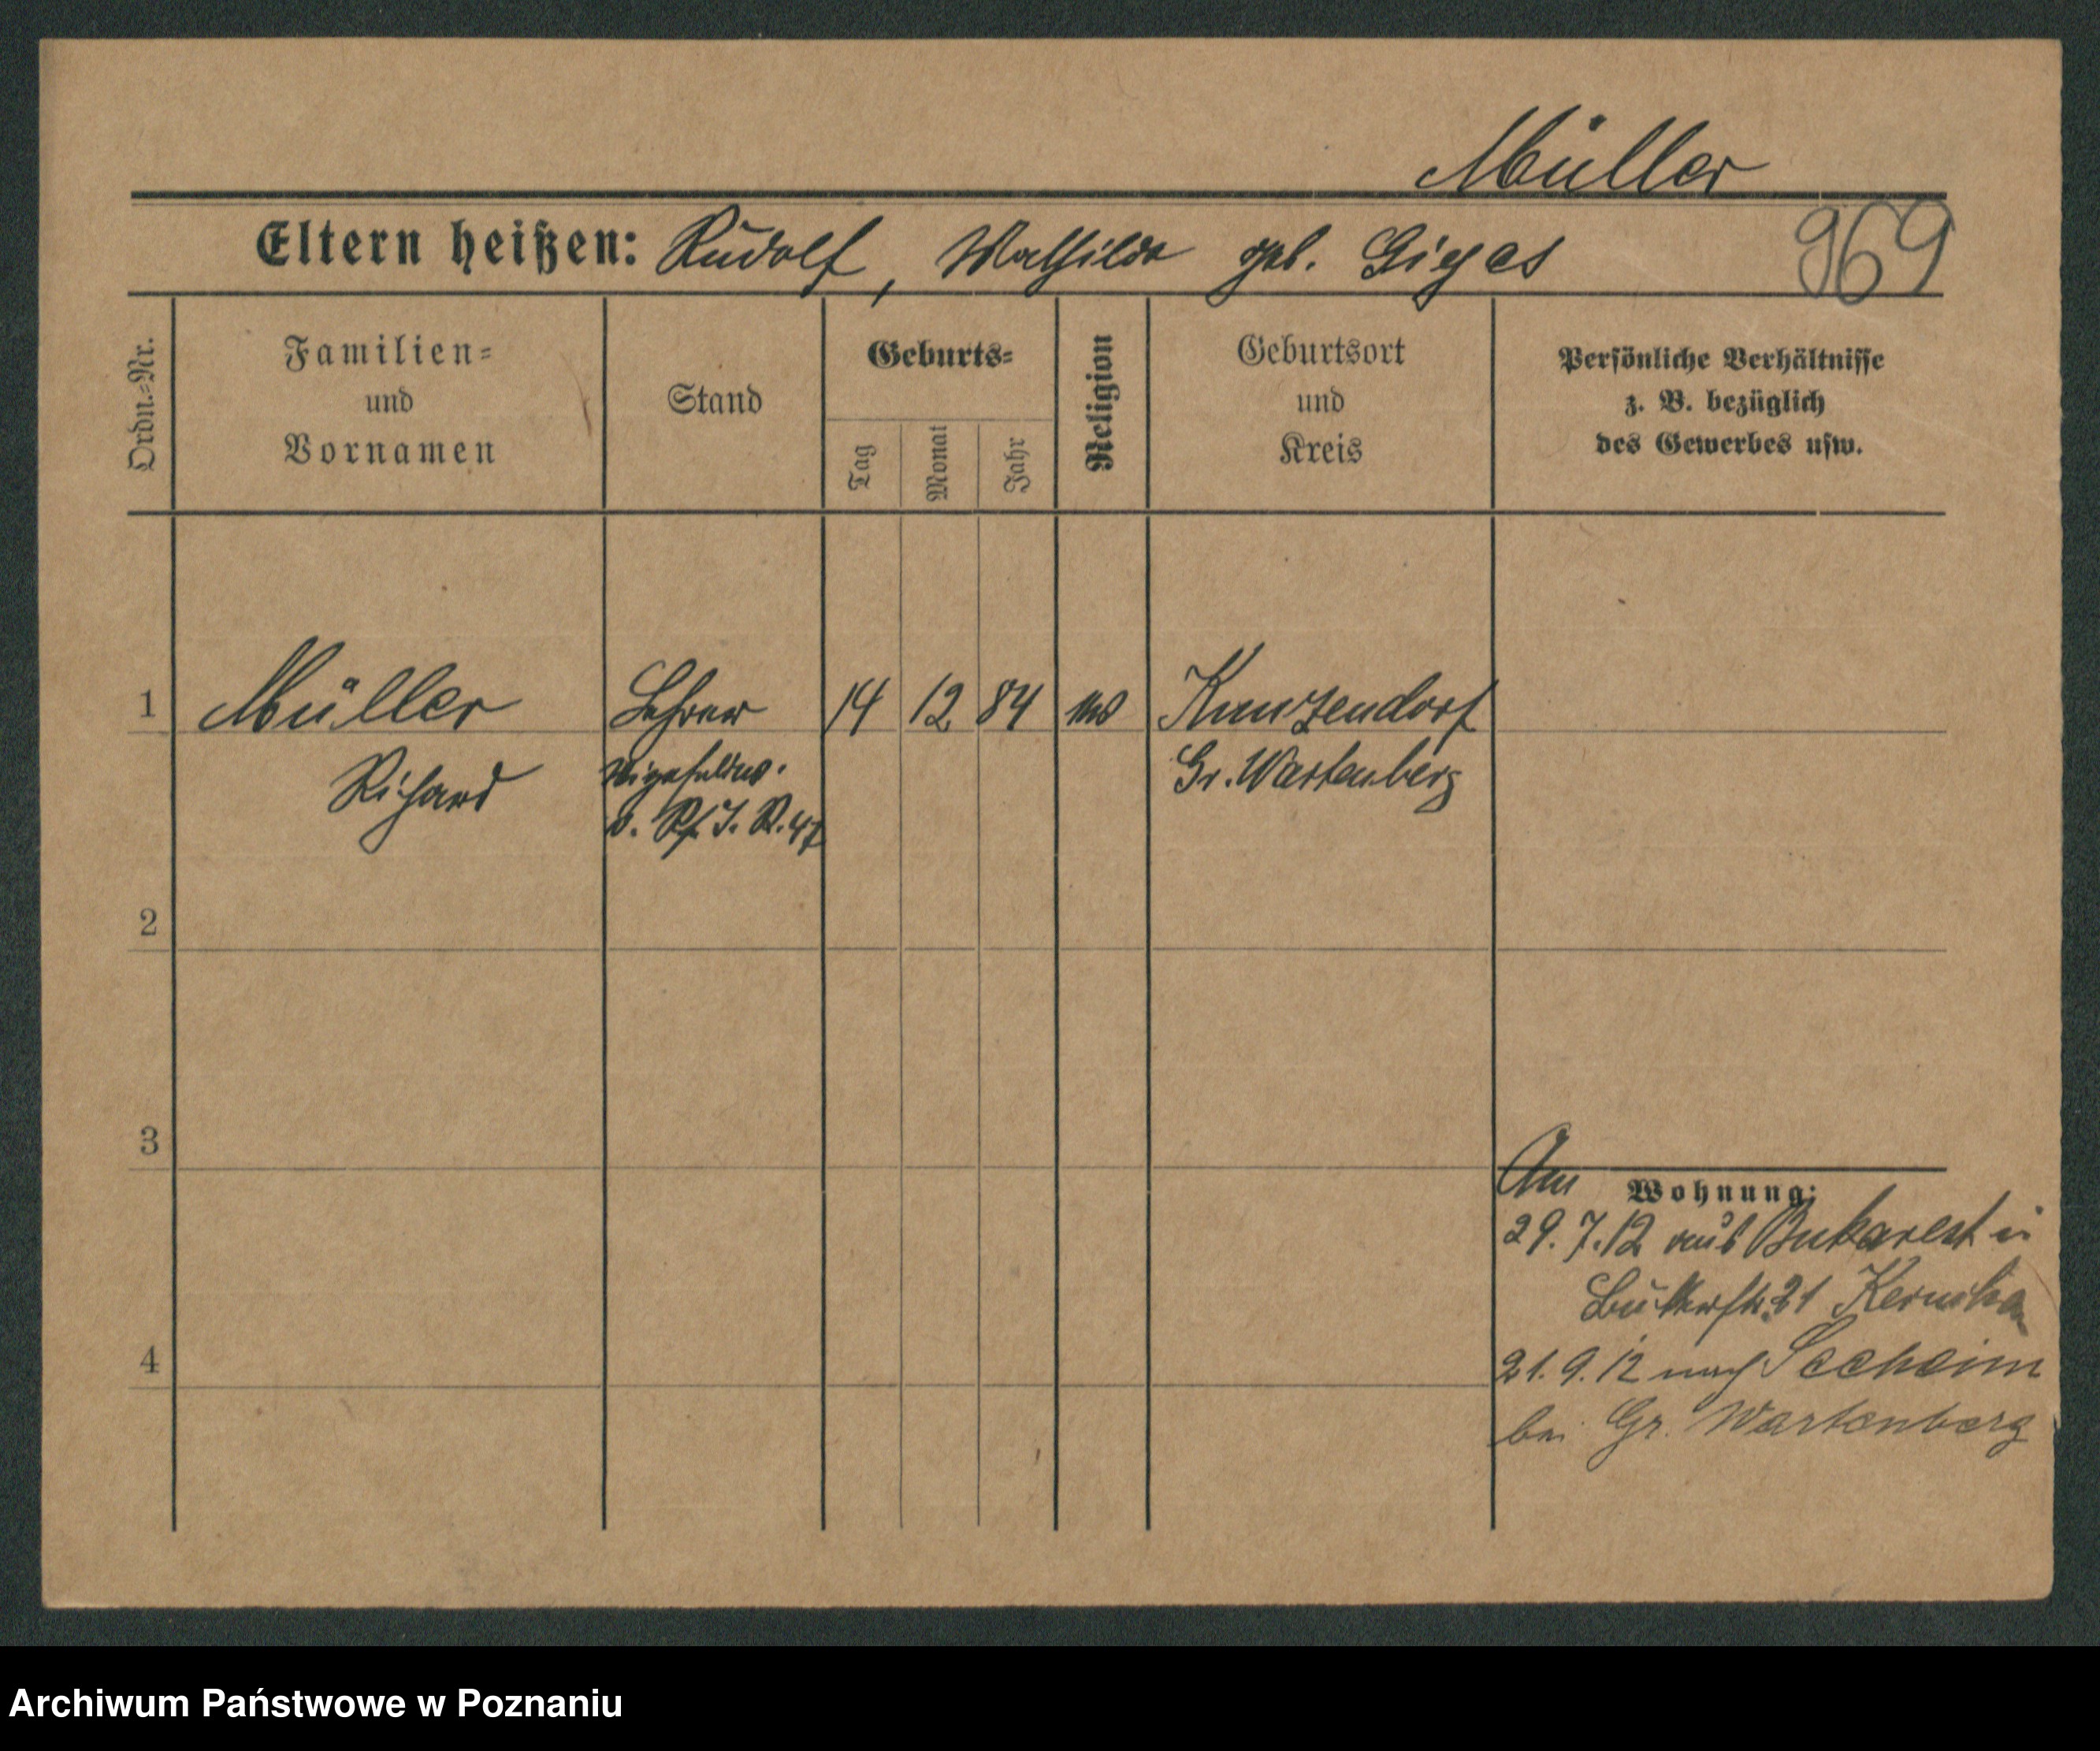 Müller
Eltern heißen: Rudolf, Mathilde geb. Gieges
969
Ordn.-Nr.
Familien- und Vornamen
Stand
Geburts-
Tag
Monat
Jahr
Religion
Geburtsort und Kreis
Persönliche Verhältnisse
z. B. bezüglich
des Gewerbes usw.
1 Müller Lehrer 14 12 84 Kunzendorf
Richard Vizefeldw. Gr. Wartenberg
d. R. J. R. 47
2
3
Am Wohnung:
29.7.12 aus Bukarest in
21
4
21.9.12 nach Seeheim
bei Gr. Wartenberg
Archiwum Państwowe w Poznaniu